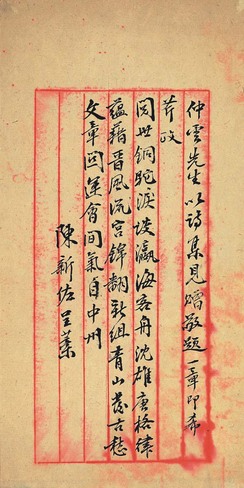 仲雲先生以詩集見贈敬題一章即希
斧政
閱世銅駝淚談瀛海客舟沈雄唐格律
蘊藉晉風流宮錦翻新組青山發古愁
文章關運會間氣自中州
陳新佐呈藁